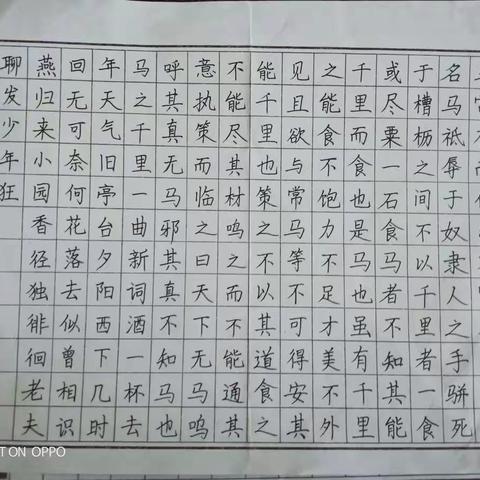 名马祇辱于奴隶人之手骈死
于槽枥之间不以千里者一食
或尽粟一石食马者不知其能
千里而食也是马也虽有千里
之能食不饱力不足才美不外
见且欲与常马等不可得安其
能千里也策之不以其道食之
不能尽其材鸣之而不能通其
意执策而临之曰天下无马呜
呼其真无马邪其真不知马也
马之千里一曲新词酒一杯去
年天气旧亭台夕阳西下几时
回无可奈何花落去似曾相识
燕归来小园香径独徘徊老夫
聊发少年狂
ON OPPO